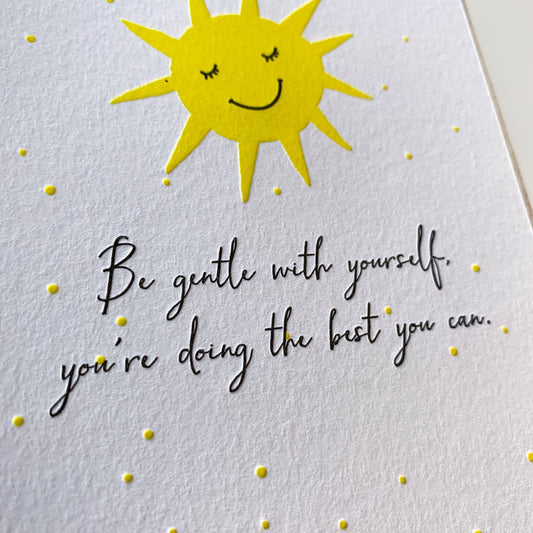 Be gentle with yourself,
you're doing the best you can.